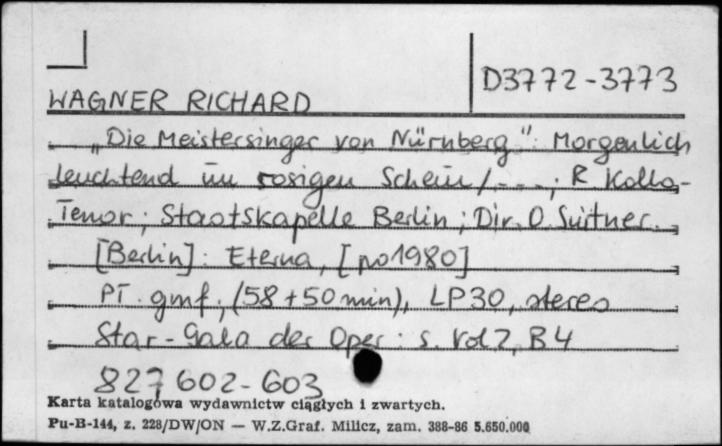 D3772-3773
WAGNER RICHARD
„Die Meistersinger von Nürnberg": Morgenlich
leuchtend im rosigen Schein /---; R Kollo-
Tenor; Staatskapelle Berlin; Dir. O. Suitner.
[Berlin]: Eterna, [po 1980]
PŁ. gmf., (58+50 min), LP30, stereo
Star-Gala der Oper: s. Vol 2, B4
827 602-603
Karta katalogowa wydawnictw ciągłych i zwartych.
Pu-B-144, z. 228/DW/ON — W.Z.Graf. Milicz, zam. 388-86 5.650.000